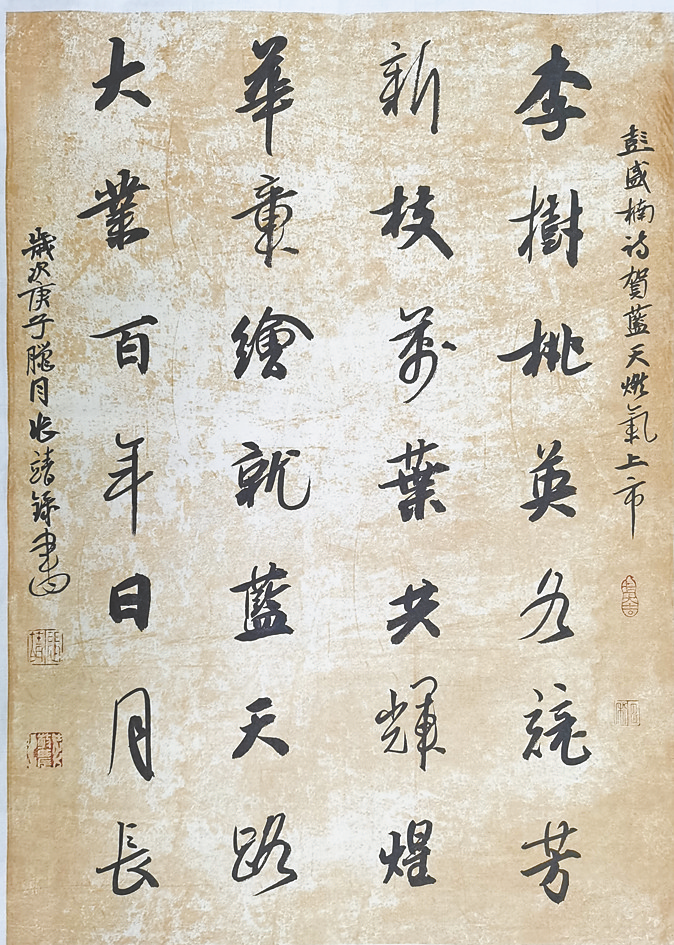 彭盛楠诗贺藍天燃氣上市
李樹桃英各競芳
新枝萬葉共輝煌
華章繪就藍天路
大業百年日月長
歲次庚子臘月张靖錄書